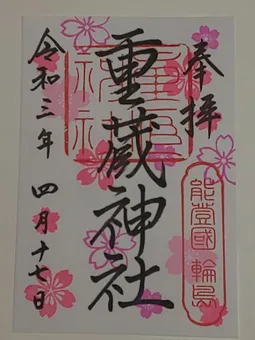 奉拝
重蔵神社
能登國 輪島
令和三年 四月十七日